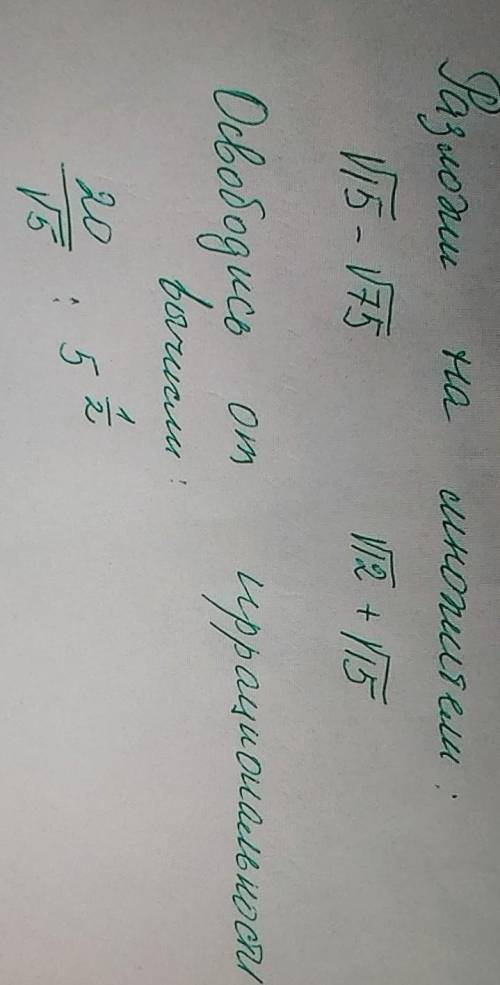 Разложи на множители:
√15 - √75 √12 + √15
Освободись от иррациональности
вычисли:
20/√5 : 5^(1/2)